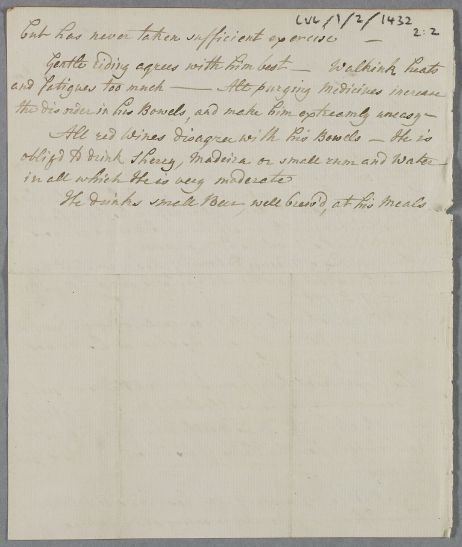 CUL/1/2/1432
2:2
but has never taken sufficient exercise —
Gentle riding agrees with him best — Walkink heats
and fatigues too much —— All purging Medicines increase
the disorder in his Bowels, and make him extreamly uneasy —
All red Wines disagree with his Bowels — He is
oblig'd to drink Sherry, Madeira or small rum and Water —
in all which He is very moderate
He drinks small Beer, well brew'd, at his Meals